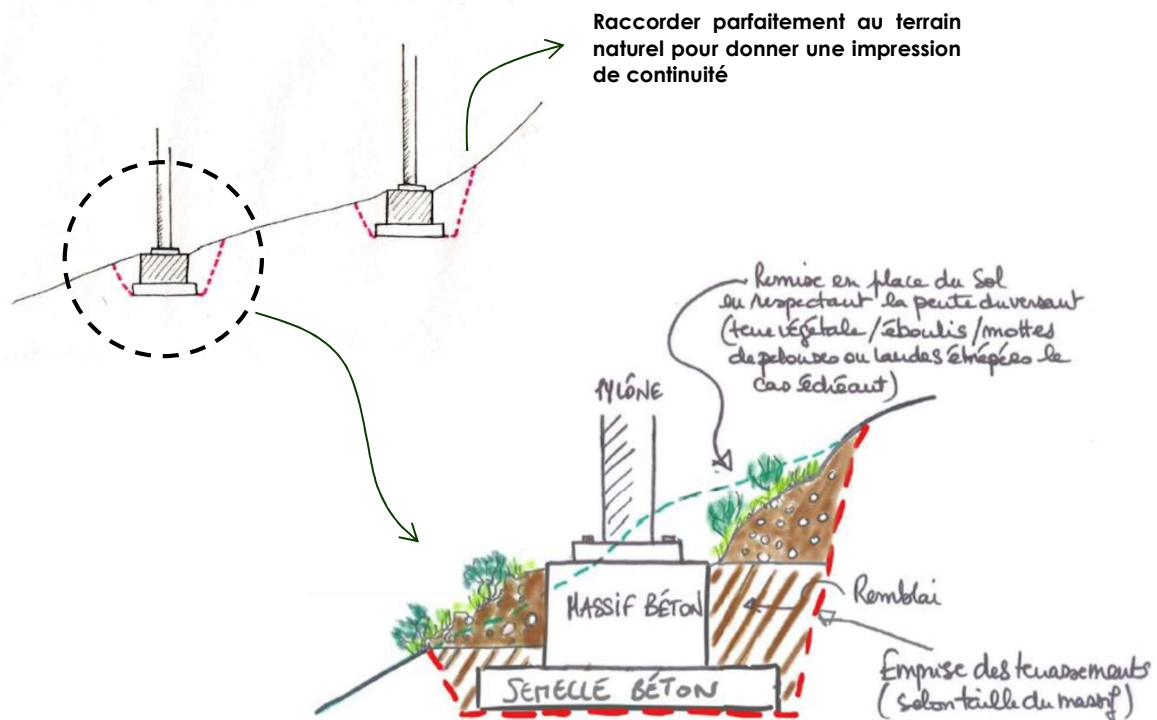 Raccorder parfaitement au terrain
naturel pour donner une impression
de continuité
Remise en place du Sol
en respectant la pente du versant
(terre végétale/éboulis/mottes
de pelouses ou landes étrépées le
cas échéant)
PYLÔNE
MASSIF BÉTON
SEMELLE BÉTON
Remblai
Emprise des terrassements
(selon taille du massif)